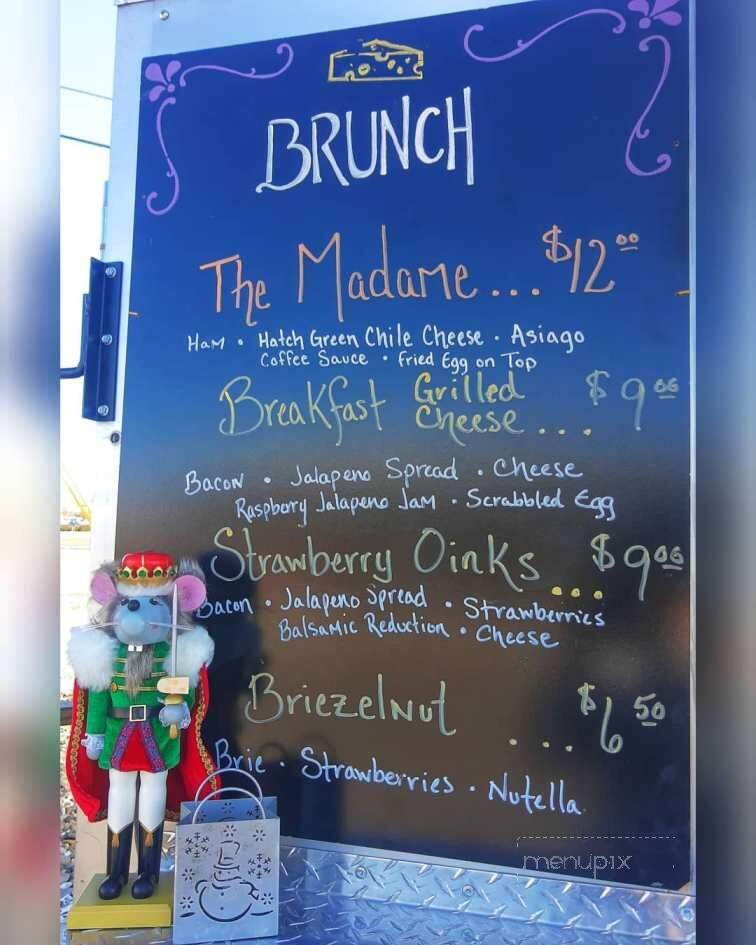 BRUNCH
The Madame... $12.00
Ham • Hatch Green Chile Cheese • Asiago
Coffee Sauce • Fried Egg on Top
Breakfast Grilled Cheese... $9.00
Bacon • Jalapeno Spread • Cheese
Raspbory Jalapeno Jam • Scrabbled Egg
Strawberry Oinks... $9.00
Bacon • Jalapeno Spread • Strawberries
Balsamic Reduction • Cheese
Briezelnut ... $6.50
Brie • Strawberries • Nutella
menupix